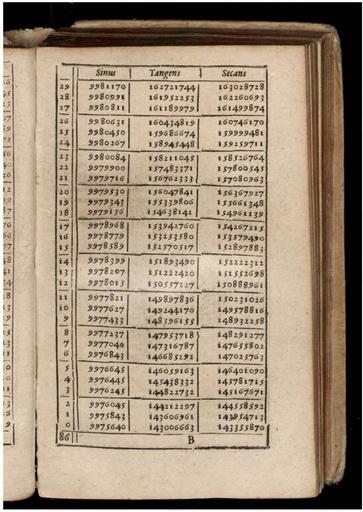 Sinus | Tangens | Secans
29 | 9981170 | 162721744 | 163028728
28 | 9980991 | 161952253 | 162260693
27 | 9980811 | 161189979 | 161499874
26 | 9980631 | 160434819 | 160746170
25 | 9980450 | 159686674 | 159999481
24 | 9980267 | 158945448 | 159259711
23 | 9980084 | 158211045 | 158526764
22 | 9979900 | 157483371 | 157800545
21 | 9979716 | 156762333 | 157080963
20 | 9979530 | 156047841 | 156367927
19 | 9979343 | 155339806 | 155661348
18 | 9979156 | 154638141 | 154961139
17 | 9978968 | 153942760 | 154267215
16 | 9978779 | 153253580 | 153579490
15 | 9978589 | 152570517 | 152897883
14 | 9978399 | 151893490 | 152222312
13 | 9978207 | 151222420 | 151552698
12 | 9978015 | 150557227 | 150888961
11 | 9977821 | 149897836 | 150231026
10 | 9977627 | 149244170 | 149578816
9 | 9977433 | 148596155 | 148932258
8 | 9977237 | 147953718 | 148291277
7 | 9977040 | 147316787 | 147655802
6 | 9976843 | 146685292 | 147025763
5 | 9976645 | 146059163 | 146401090
4 | 9976445 | 145438332 | 145781715
3 | 9976245 | 144822732 | 145167671
2 | 9976045 | 144212297 | 144558592
1 | 9975843 | 143606961 | 143954713
0 | 9975640 | 143006663 | 143355870
86 | B